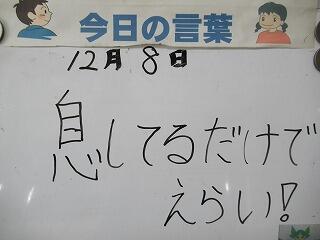 今日の言葉
12月 8日
息してるだけで
えらい!